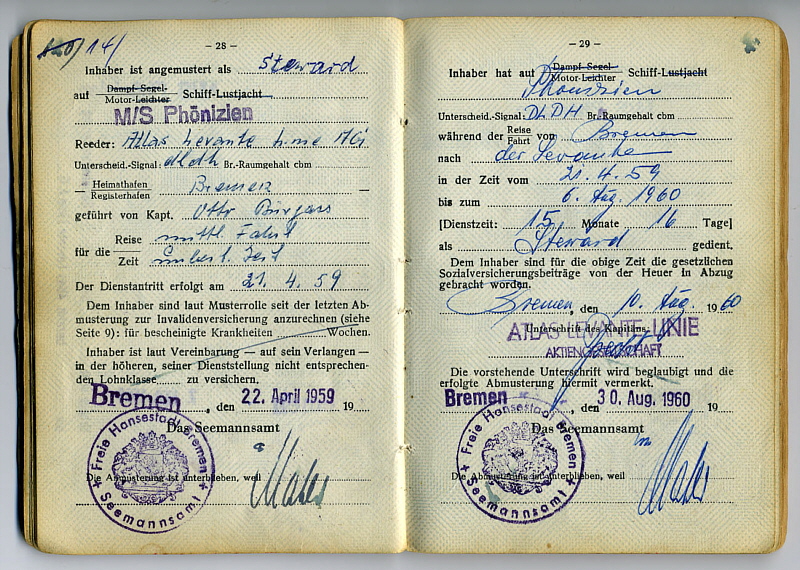 14/
– 28 –
Inhaber ist angemustert als Steward
auf Dampf-Segel- Motor-Leichter Schiff-Lustjacht
M/S Phönizien
Reeder: Atlas Levante Linie AG
Unterscheid.-Signal: dldh Br.-Raumgehalt cbm
Heimathafen Registerhafen Bremen
geführt von Kapt. Otto
für die Reise Zeit mittl. Fahrt
unbest. Zeit
Der Dienstantritt erfolgt am 21. 4. 59
Dem Inhaber sind laut Musterrolle seit der letzten Ab-
musterung zur Invalidenversicherung anzurechnen (siehe
Seite 9): für bescheinigte Krankheiten Wochen.
Inhaber ist laut Vereinbarung — auf sein Verlangen —
in der höheren, seiner Dienststellung nicht entsprechen-
den Lohnklasse zu versichern.
Bremen, den 22. April 1959 19
Das Seemannsamt
Die Abmusterung ist unterblieben, weil
Freie Hansestadt Bremen
Seemannsamt
– 29 –
Inhaber hat auf Dampf-Segel- Motor-Leichter Schiff-Lustjacht
Phönizien
Unterscheid.-Signal: DLDH Br.-Raumgehalt cbm
während der Reise Fahrt von Bremen
nach der Levante
in der Zeit vom 21. 4. 59
bis zum 6. Aug. 1960
[Dienstzeit: 15 Monate 16 Tage]
als Steward gedient.
Dem Inhaber sind für die obige Zeit die gesetzlichen
Sozialversicherungsbeiträge von der Heuer in Abzug
gebracht worden.
Bremen, den 10. Aug. 1960
Unterschrift des Kapitäns
ATLAS LEVANTE-LINIE
AKTIENGESELLSCHAFT
Die vorstehende Unterschrift wird beglaubigt und die
erfolgte Abmusterung hiermit vermerkt.
Bremen, den 30. Aug. 1960 19
Das Seemannsamt
Die Abmusterung ist unterblieben, weil
Freie Hansestadt Bremen
Seemannsamt